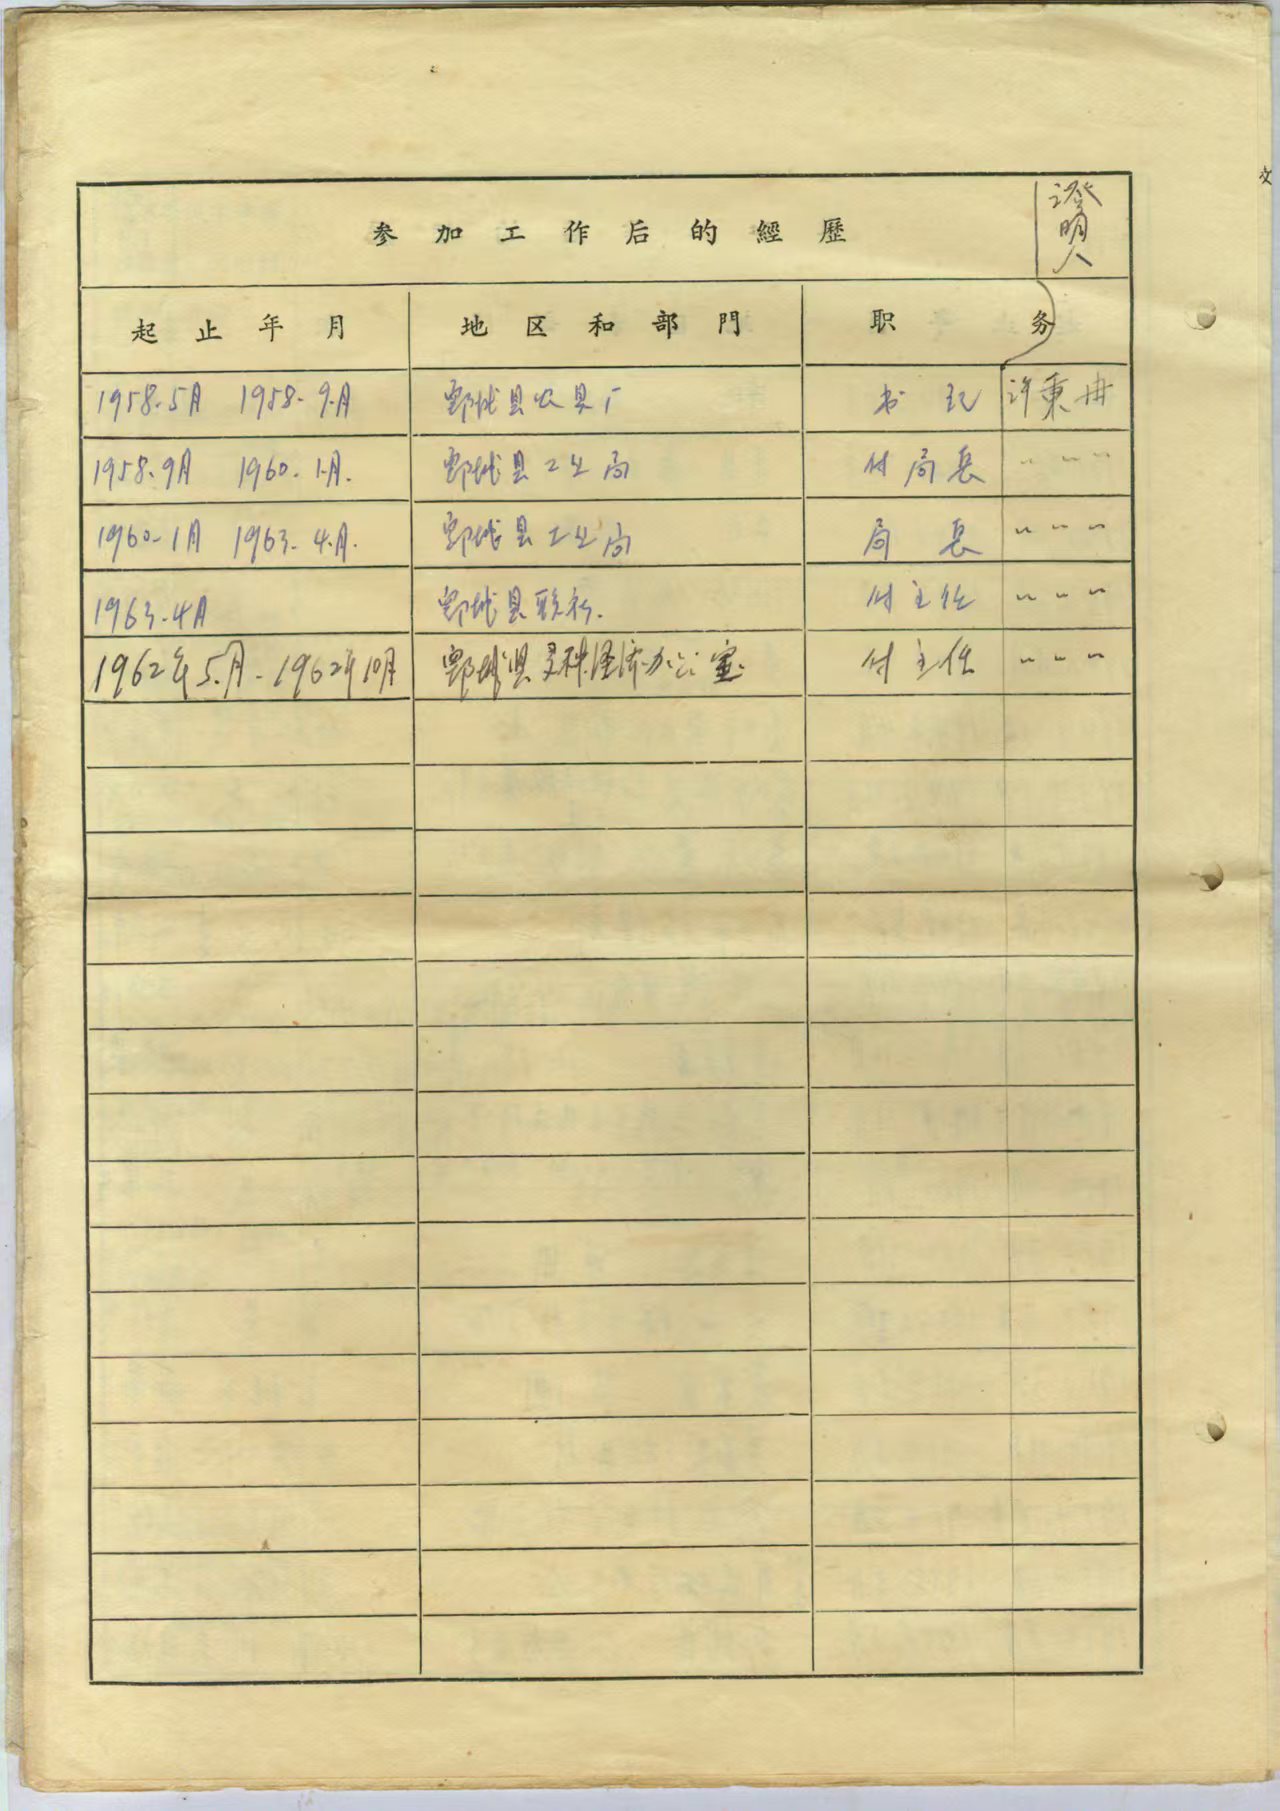 参加工作后的經歷 证明人
起止年月 地区和部門 职务
1958.5月 1958.9月 鄄城县农具厂 书记 许秉冉
1958.9月 1960.1月. 鄄城县工业局 付局长 〃 〃 〃
1960.1月 1963.4月. 鄄城县工业局 局长 〃 〃 〃
1963.4月 鄄城县联社. 付主任 〃 〃 〃
1962年5月-1962年10月 鄄城县 经济办公室 付主任 〃 〃 〃
文